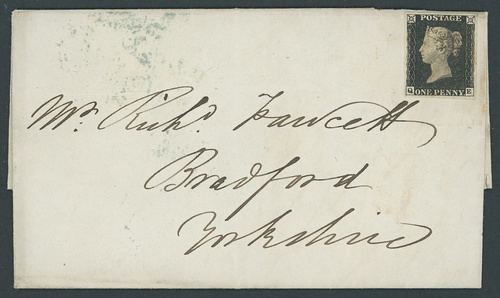 POSTAGE
ONE PENNY
Mr. Richd. Fawcett
Bradford
Yorkshire